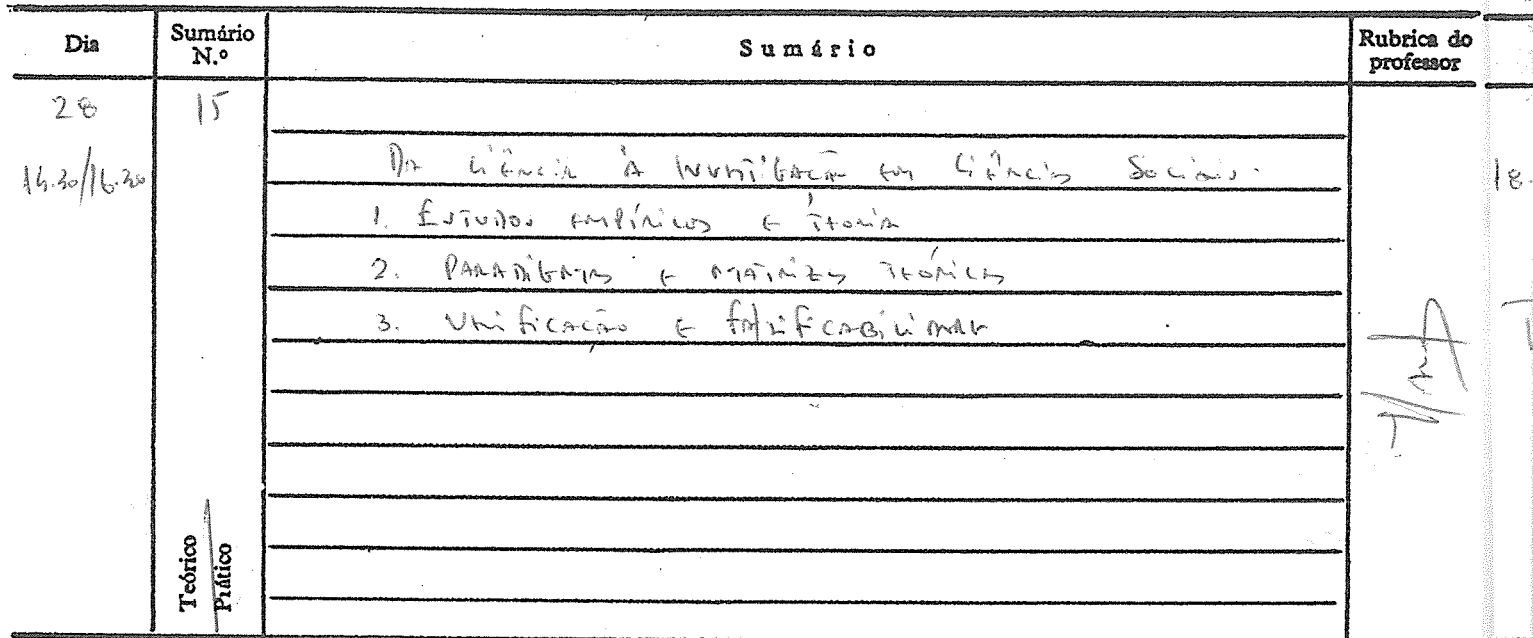 Dia
Sumário N.º
Sumário
Rubrica do professor
28
15
14.30/16.30
Da Ciência à Investigação em Ciências Sociais.
1. Estudos empíricos e teoria
2. Paradigmas e matrizes teóricas
3. Verificação e falsificabilidade
Teórico
Prático
18.